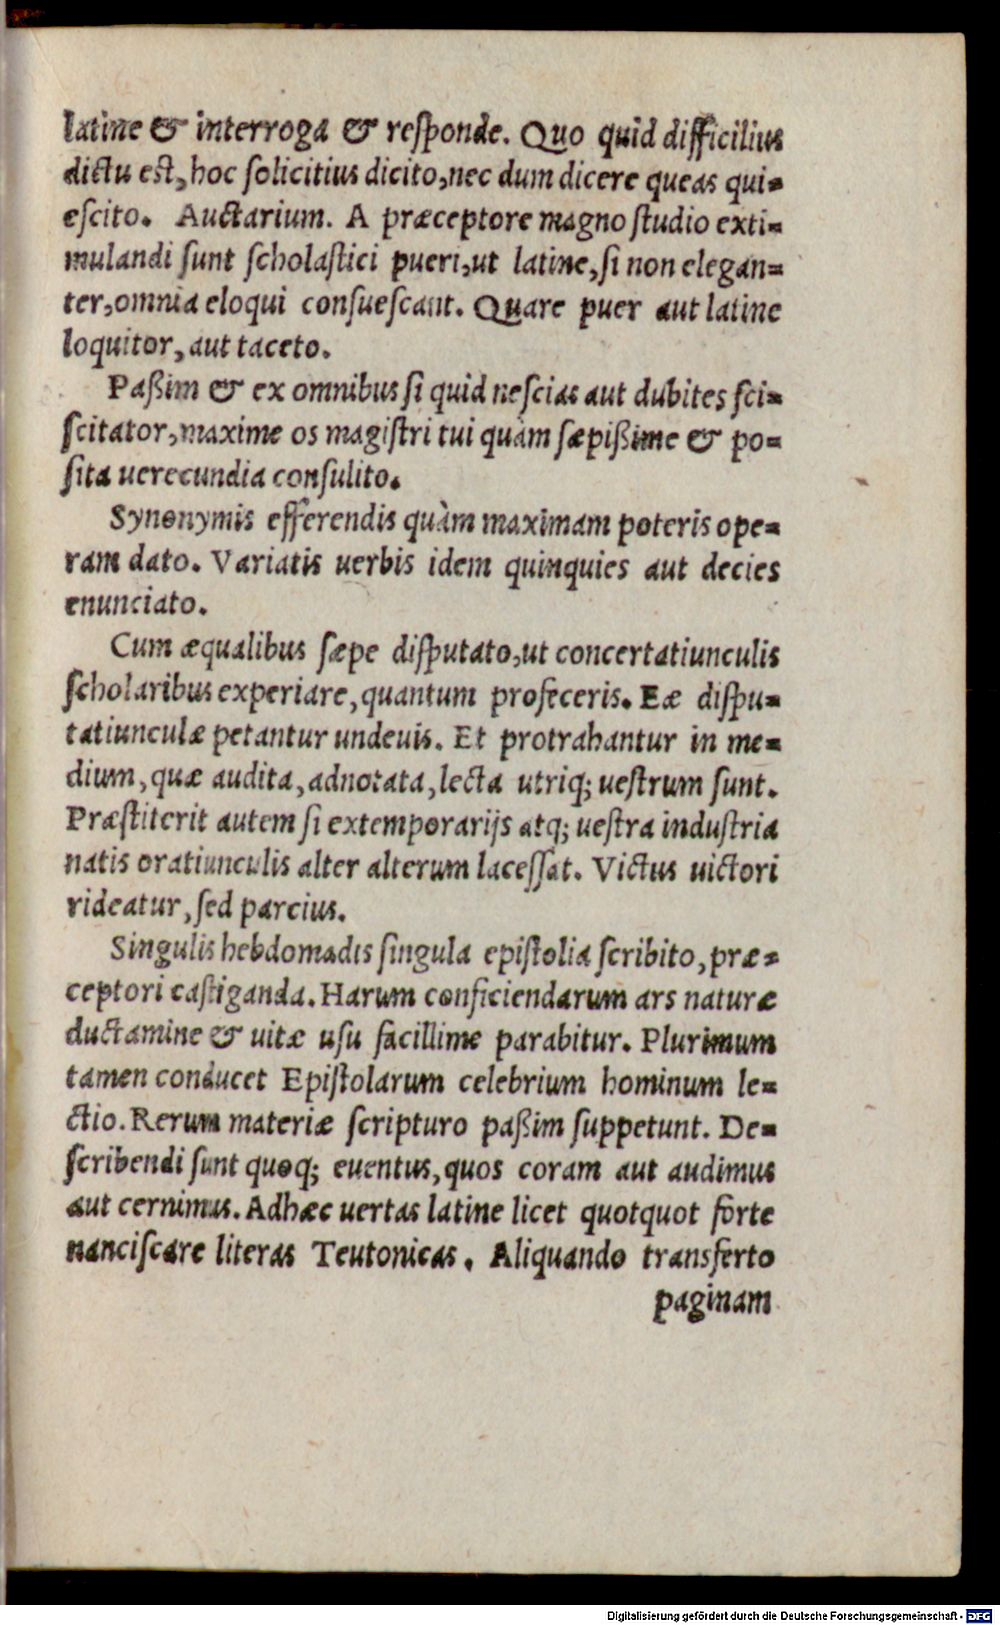 latine & interroga & reſponde. Quo quid difficilius
dictu est, hoc ſolicitius dicito, nec dum dicere queas qui-
eſcito. Auctarium. A præceptore magno ſtudio exti-
mulandi ſunt ſcholaſtici pueri, ut latine, ſi non elegan-
ter, omnia eloqui conſueſcant. Quare puer aut latine
loquitor, aut taceto.
Paßim & ex omnibus ſi quid neſcias aut dubites ſci-
ſcitator, maxime os magiſtri tui quàm ſæpißime & po-
ſita uerecundia conſulito.
Synonymis efferendis quàm maximam poteris ope-
ram dato. Variatis uerbis idem quinquies aut decies
enunciato.
Cum æqualibus ſæpe diſputato, ut concertatiunculis
ſcholaribus experiare, quantum profeceris. Eæ diſpu-
tatiunculæ petantur undeuis. Et protrahantur in me-
dium, quæ audita, adnotata, lecta utriq; ueſtrum ſunt.
Præſtiterit autem ſi extemporarijs atq; ueſtra induſtria
natis oratiunculis alter alterum laceſſat. Victus uictori
rideatur, ſed parcius.
Singulis hebdomadis ſingula epiſtolia ſcribito, præ-
ceptori caſtiganda. Harum conficiendarum ars naturæ
ductamine & uitæ uſu facillime parabitur. Plurimum
tamen conducet Epiſtolarum celebrium hominum le-
ctio. Rerum materiæ ſcripturo paßim ſuppetunt. De-
ſcribendi ſunt quoq; euentus, quos coram aut audimus
aut cernimus. Adhæc uertas latine licet quotquot forte
nanciſcare literas Teutonicas. Aliquando transferto
paginam
Digitalisierung gefördert durch die Deutsche Forschungsgemeinschaft - DFG